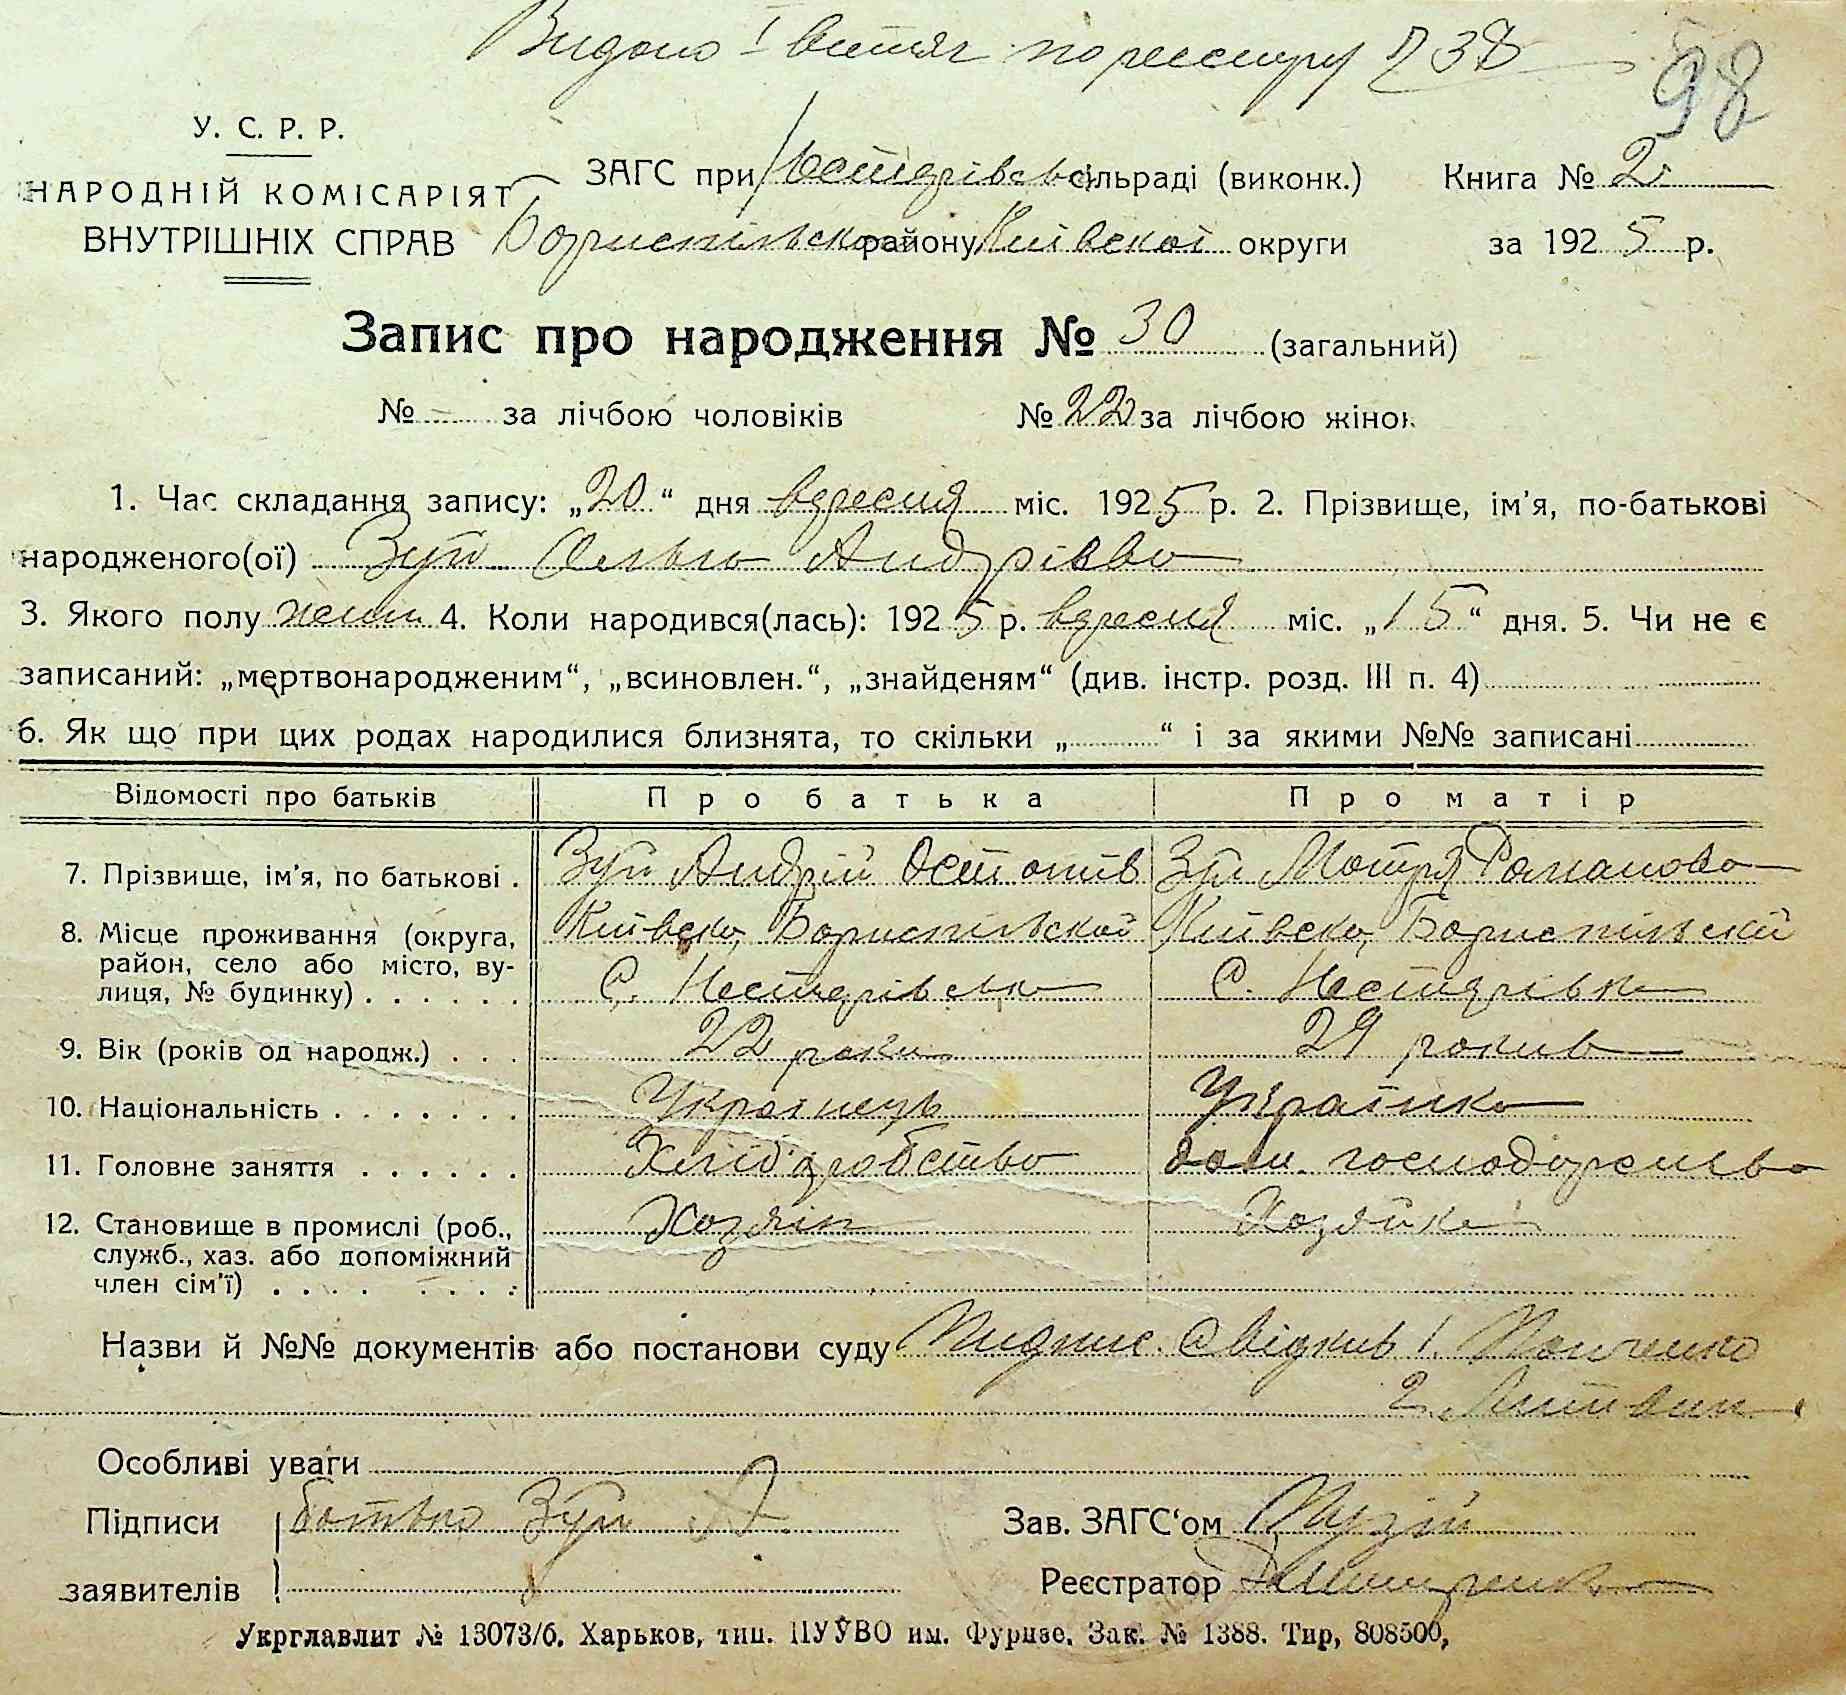 Видано I витяг по реєстру 738
98
У. С. Р. Р.
НАРОДНІЙ КОМІСАРІЯТ
ВНУТРІШНІХ СПРАВ
ЗАГС при Нестярівськ сільраді (виконк.)
Книга № 2
Бориспільсько району Київскої округи
за 1925 р.
Запис про народження № 30 (загальний)
№ - за лічбою чоловіків № 22 за лічбою жінок
1. Час складання запису: „20“ дня вересня міс. 1925 р. 2. Прізвище, ім'я, по-батькові
народженого(ої) Зуй Ольга Андрієва
3. Якого полу жін 4. Коли народився(лась): 1925 р. вересня міс. „15“ дня. 5. Чи не є
записаний: „мертвонародженим“, „всиновлен.“, „знайденям“ (див. інстр. розд. III п. 4)
6. Як що при цих родах народилися близнята, то скільки „ “ і за якими №№ записані
Відомості про батьків Про батька Про матір
7. Прізвище, ім'я, по батькові . Зуй Андрій Остапів Зуй Мотря Романова
8. Місце проживання (округа, Київско, Бориспільскої Київско, Бориспільскій
район, село або місто, ву- С. Нестярівська С. Нестярівка
лиця, № будинку) . . . . . .
9. Вік (років од народж.) . . . 22 роки 29 років
10. Національність . . . . . . . Українець Українка
11. Головне заняття . . . . . Хліборобство дом. господарство
12. Становище в промислі (роб., Хозяін Хозяйка
служб., хаз. або допоміжний
член сім'ї) . . . . . . . .
Назви й №№ документів або постанови суду Підпис. Свідків 1.
2. Литвин
Особливі уваги
Підписи батько Зуй А. Зав. ЗАГС'ом
заявителів Реєстратор
Укрглавлит № 13073/б. Харьков, тип. ПУУВО им. Фрунзе. Зак. № 1388. Тир, 808500,